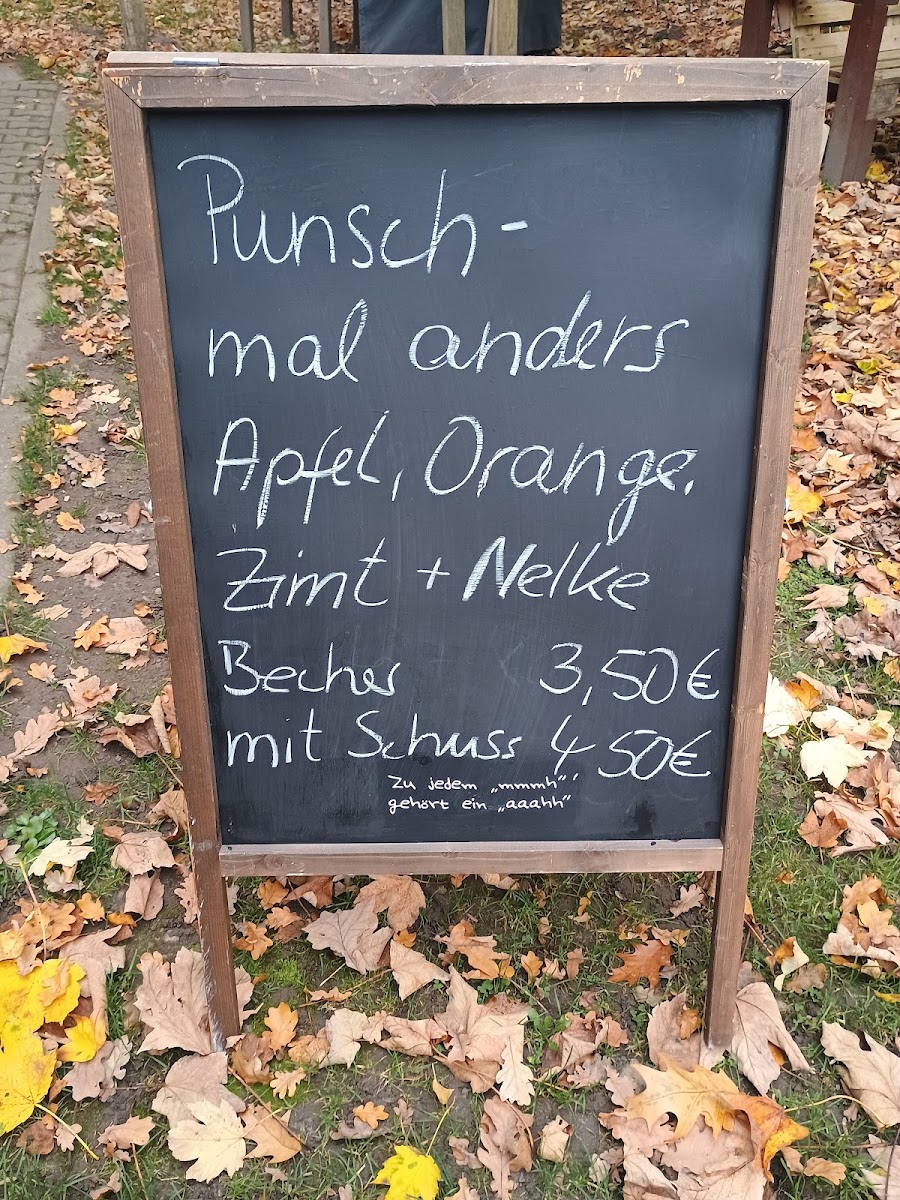 Punsch-
mal anders
Apfel, Orange,
Zimt + Nelke
Becher 3,50€
mit Schuss 4 50€
Zu jedem „mmmh"
gehört ein „aaahh"